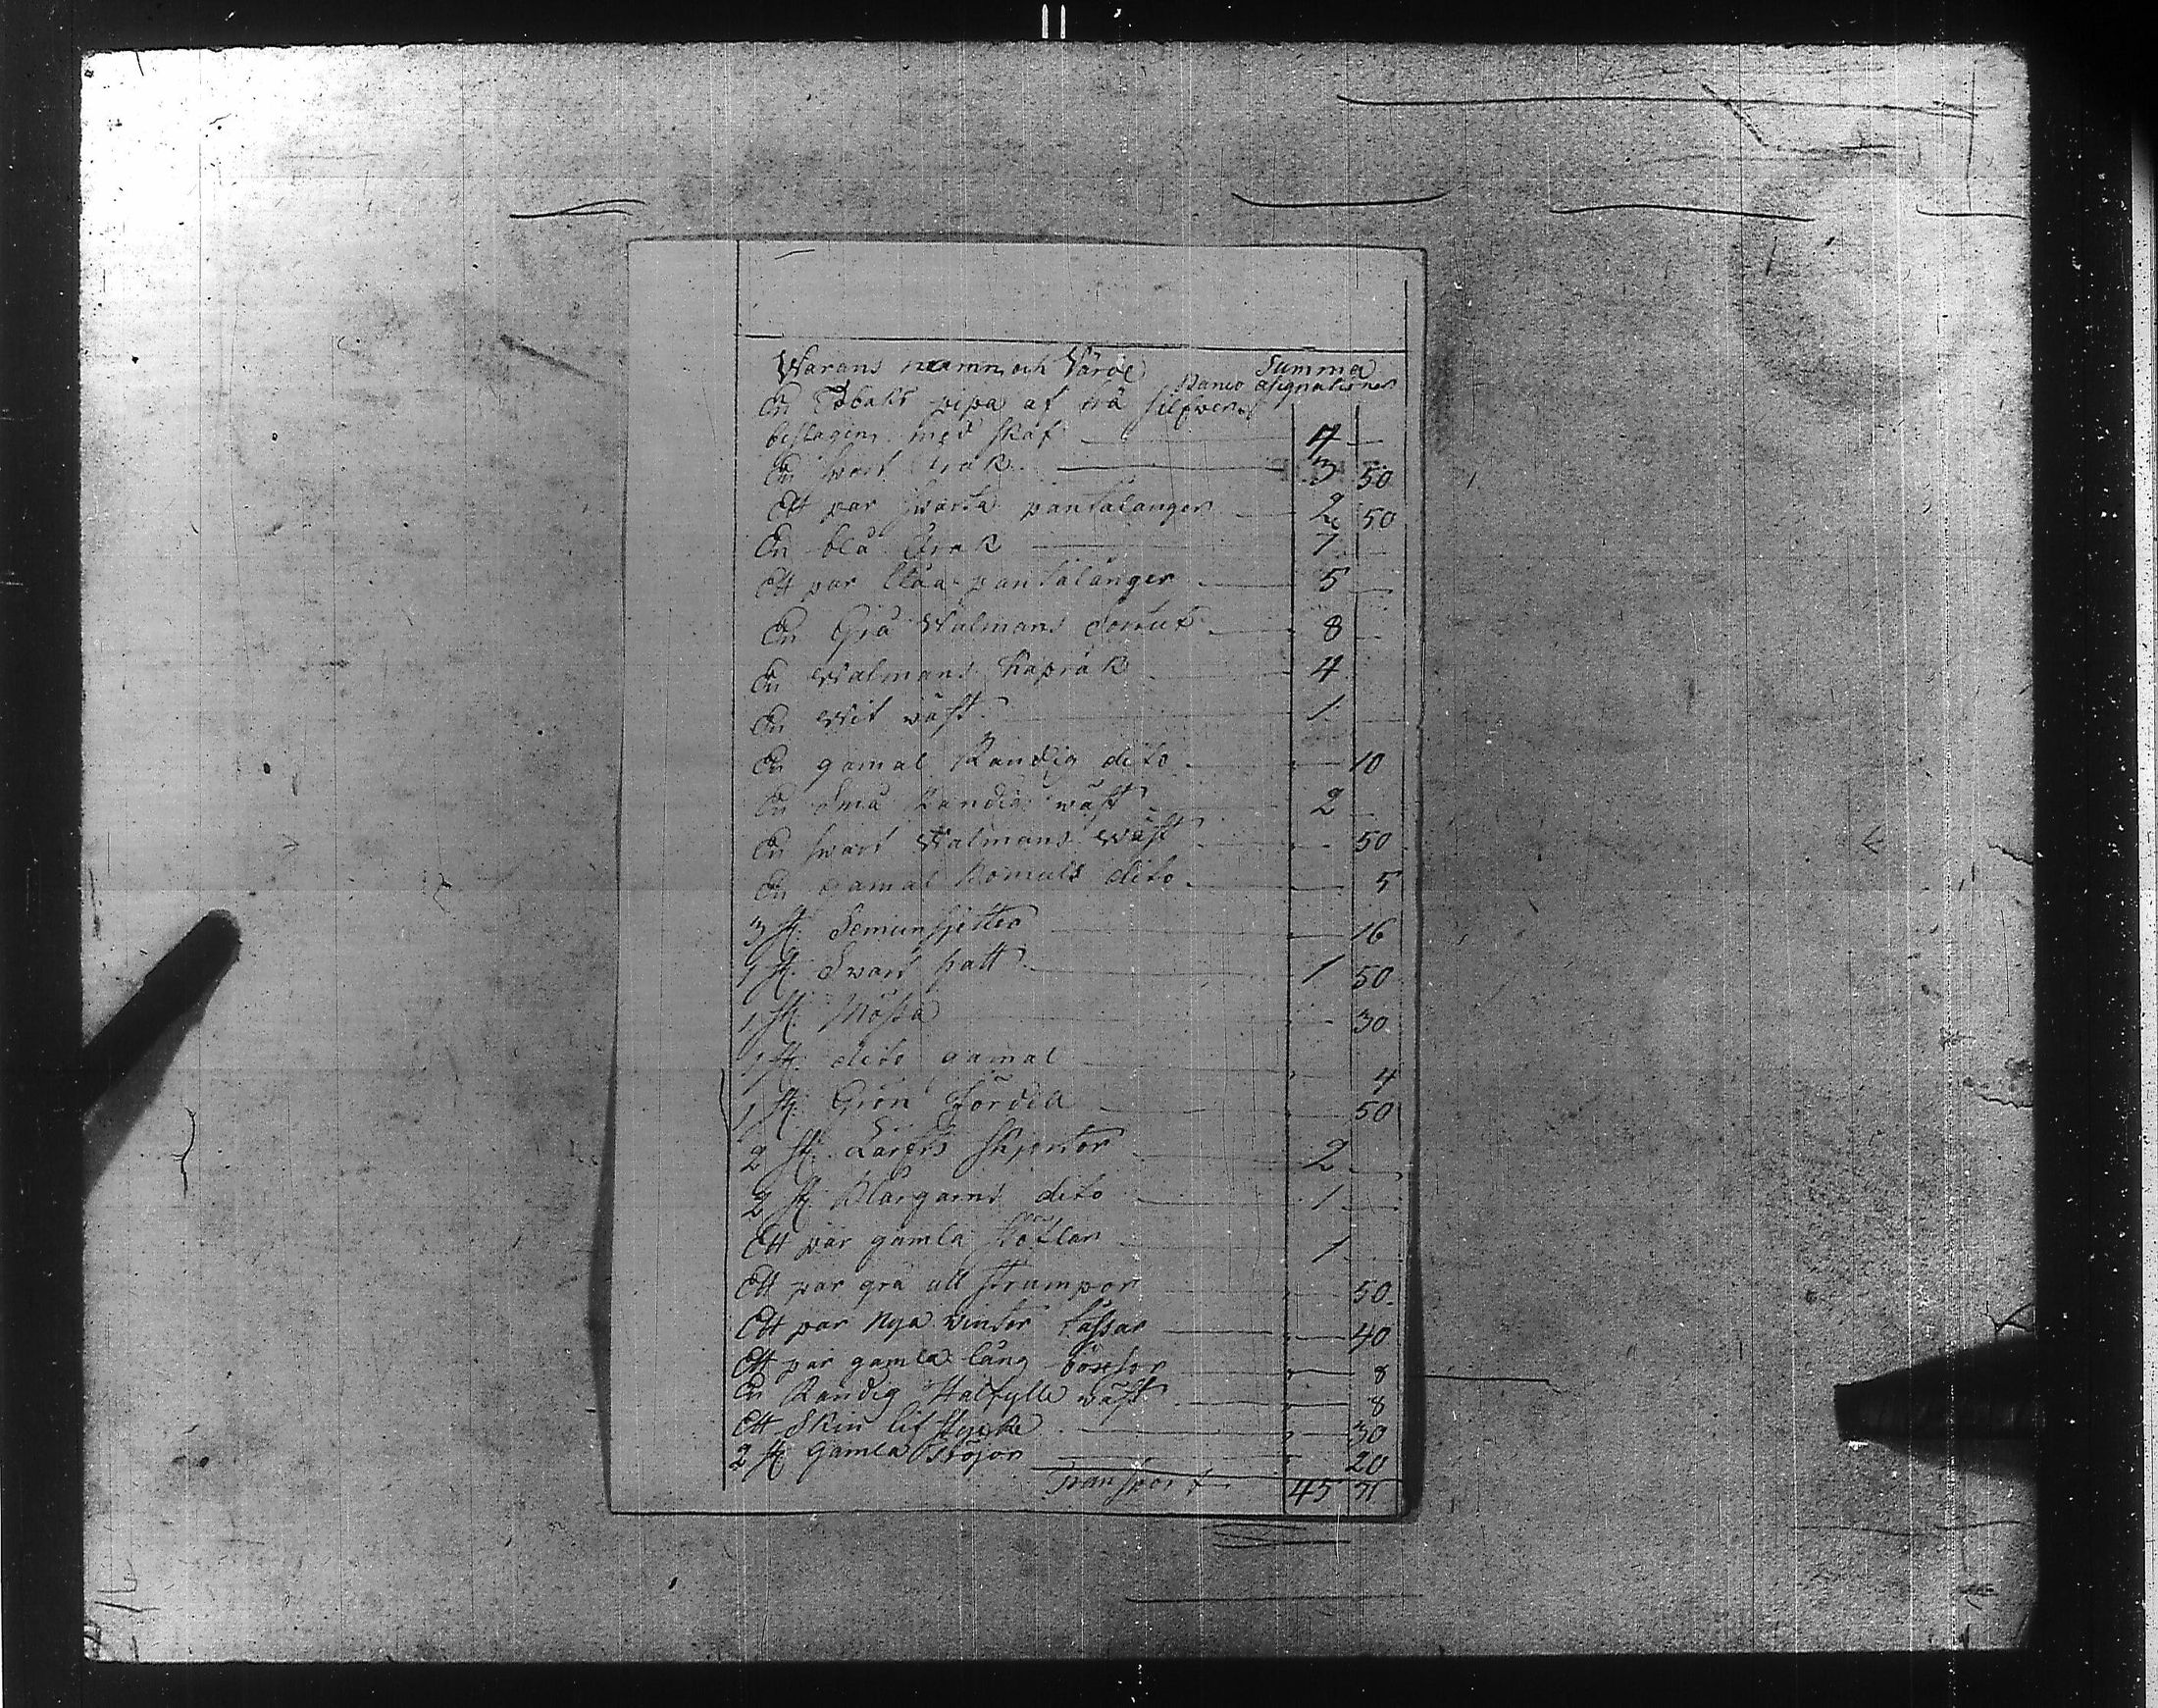 Warans namn och Värde Summa
Banco assignationer
En Tobaks pipa af trä silfver
beslagen med skaf 4 —
En swart frak 3 50
Ett par swarta pantalånger 2 50
En blå frak 7 —
Ett par blåa pantalånger 5 —
En Grå Walmans Sortut 8 —
En Walmans Kapråk 4
En Wit wäst 1 —
En gamal Randig dito — 10
En Små Randig wäst 2 —
En swart Walmans wäst — 50
En gamal Bomuls dito — 5
3 st. — 16
1 st. Swart hatt 1 50
1 st. Mössa — 30
1 st. dito gamal — 4
1 st. Grön — 50
2 st. Lärfts skjortor 2 —
2 st. Blårgarns dito 1 —
Ett par gamla stöflar 1 —
Ett par grå ull strumpor — 50
Ett par Nya winter tassar — 40
Ett par gamla lång böxsor — 8
En Randig Halfylle wäst — 8
Ett Skin lif stycke — 30
2 st. Gamla tröjor — 20
Transport 45 71